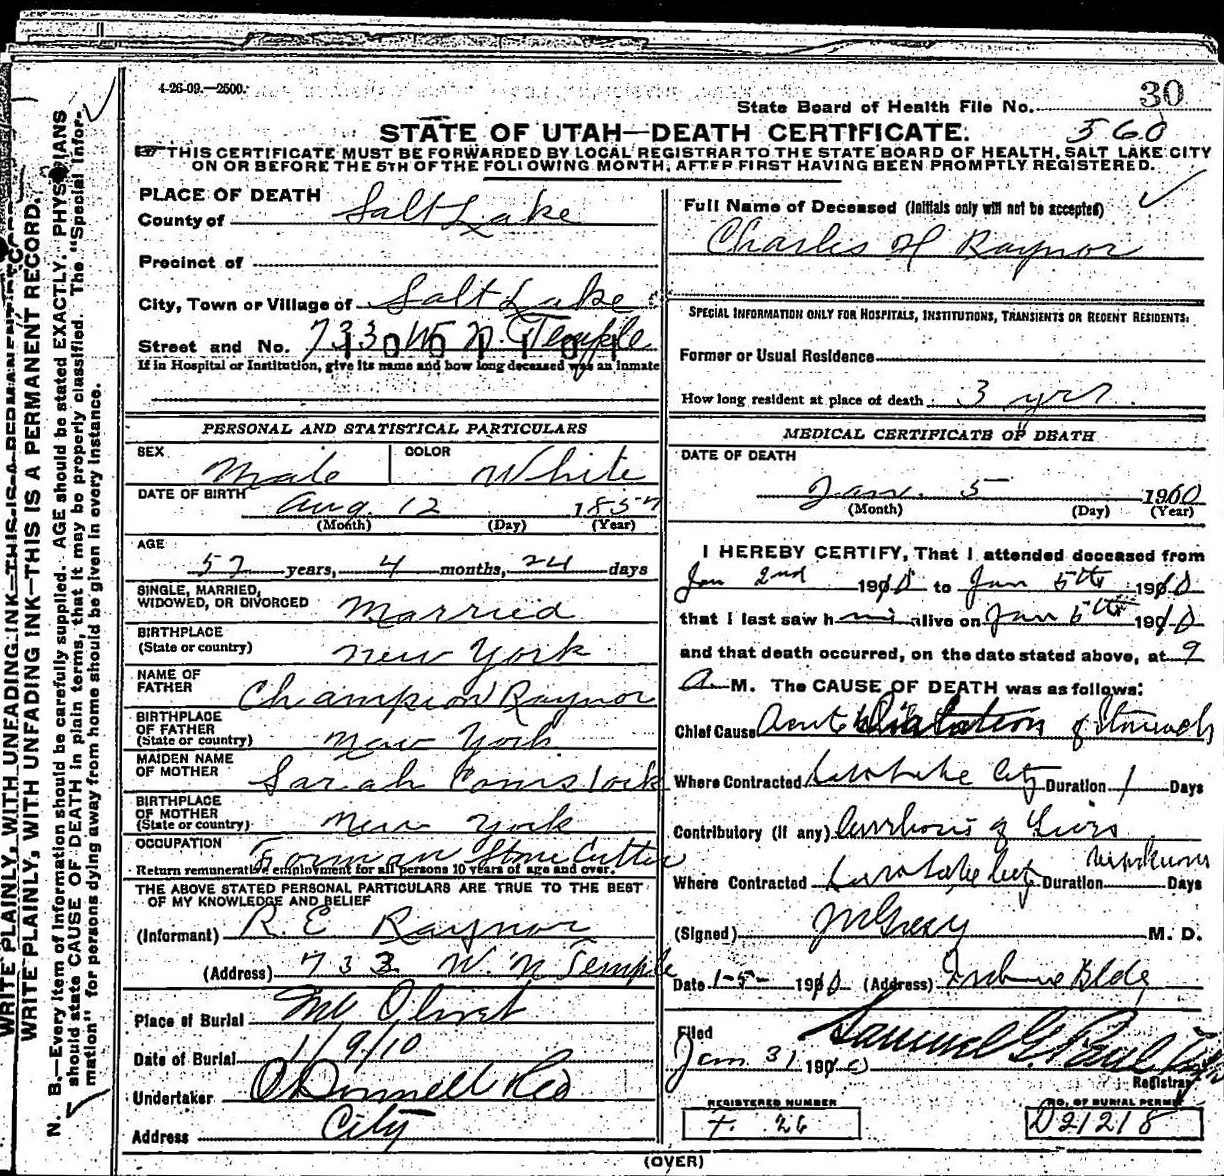 4-26-09.—2500.
30
State Board of Health File No.
STATE OF UTAH—DEATH CERTIFICATE.
560
THIS CERTIFICATE MUST BE FORWARDED BY LOCAL REGISTRAR TO THE STATE BOARD OF HEALTH, SALT LAKE CITY
ON OR BEFORE THE 5TH OF THE FOLLOWING MONTH, AFTER FIRST HAVING BEEN PROMPTLY REGISTERED.
WRITE PLAINLY, WITH UNFADING INK—THIS IS A PERMANENT RECORD.
WRITE PLAINLY, WITH UNFADING INK—THIS IS A PERMANENT RECORD.
N. B.—Every item of information should be carefully supplied. AGE should be stated EXACTLY. PHYSICIANS
should state CAUSE OF DEATH in plain terms, that it may be properly classified. The "Special Infor-
mation" for persons dying away from home should be given in every instance.
PLACE OF DEATH
County of Salt Lake
Precinct of
City, Town or Village of Salt Lake
Street and No. 733 W N. Temple
If in Hospital or Institution, give its name and how long deceased was an inmate
PERSONAL AND STATISTICAL PARTICULARS
SEX Male COLOR White
DATE OF BIRTH Aug. 12 1857
(Month) (Day) (Year)
AGE
52 years, 4 months, 24 days
SINGLE, MARRIED,
WIDOWED, OR DIVORCED Married
BIRTHPLACE
(State or country) New York
NAME OF
FATHER Champion Raynor
BIRTHPLACE
OF FATHER
(State or country) New York
MAIDEN NAME
OF MOTHER Sarah
BIRTHPLACE
OF MOTHER
(State or country) New York
OCCUPATION Forman Stone Cutter
Return remunerative employment for all persons 10 years of age and over.
THE ABOVE STATED PERSONAL PARTICULARS ARE TRUE TO THE BEST
OF MY KNOWLEDGE AND BELIEF
(Informant) R. E Raynor
(Address) 733 W. N Temple
Place of Burial Mt Olivet
Date of Burial 1/9/10
Undertaker O'Donnell &Co
Address City
Full Name of Deceased (Initials only will not be accepted)
Charles H Raynor
SPECIAL INFORMATION ONLY FOR HOSPITALS, INSTITUTIONS, TRANSIENTS OR RECENT RESIDENTS:
Former or Usual Residence
How long resident at place of death 3 yrs.
MEDICAL CERTIFICATE OF DEATH
DATE OF DEATH
Jan. 5 1910
(Month) (Day) (Year)
I HEREBY CERTIFY, That I attended deceased from
Jan 2nd 1910 to Jan 5th 1910
that I last saw him alive on Jan 5th 1910
and that death occurred, on the date stated above, at 9
A M. The CAUSE OF DEATH was as follows:
Chief Cause Acute Dilatation of Stomach
Where Contracted Salt Lake City Duration 1 Days
Contributory (if any) Cirrhosis of Liver
Where Contracted Salt Lake City Duration Unknown Days
(Signed) M. D.
Date 1-5- 1910 (Address) Tribune Bldg
Filed
Jan 31 1910 Samuel G. Paul
Registrar
REGISTERED NUMBER
26
NO. OF BURIAL PERMIT
D21218
(OVER)